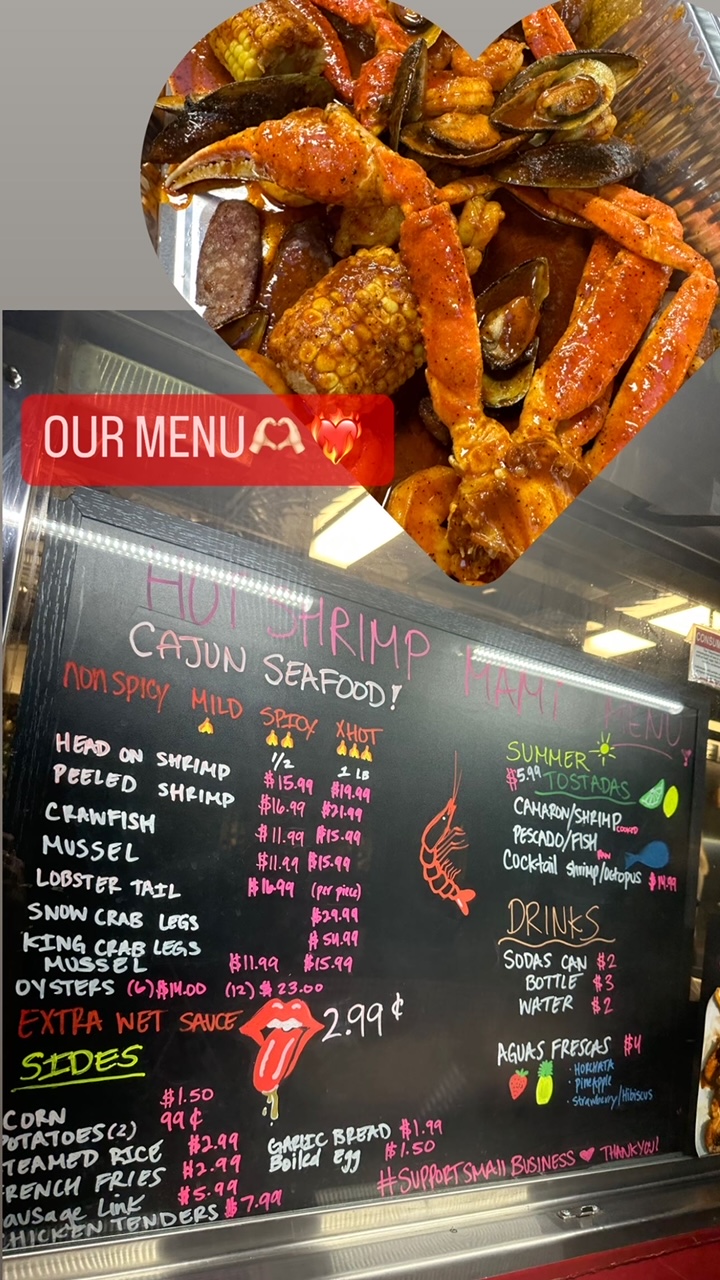 OUR MENU
HOT SHRIMP MAMI MENU
CAJUN SEAFOOD!
non SPICY MILD SPICY XHOT
1/2 1 LB
HEAD ON SHRIMP $15.99 $19.99
PEELED SHRIMP $16.99 $21.99
CRAWFISH $11.99 $15.99
MUSSEL $11.99 $15.99
LOBSTER TAIL $16.99 (per piece)
SNOW CRAB LEGS $29.99
KING CRAB LEGS $54.99
MUSSEL $11.99 $15.99
OYSTERS (6) $14.00 (12) $23.00
EXTRA WET SAUCE 2.99¢
SIDES
CORN $1.50
POTATOES (2) 99¢
TEAMED RICE $2.99
RENCH FRIES $2.99
ausage Link $5.99
CHICKEN TENDERS $7.99
GARLIC BREAD $1.99
Boiled Egg $1.50
SUMMER
$5.99 TOSTADAS
CAMARON/SHRIMP COOKED
PESCADO/FISH RAW
Cocktail shrimp/octopus $14.99
DRINKS
SODAS CAN $2
BOTTLE $3
WATER $2
AGUAS FRESCAS $4
· HORCHATA
· Pineapple
· Strawberry/Hibiscus
#SUPPORTSMAll BUSINESS THANKYOU!
CONSUM